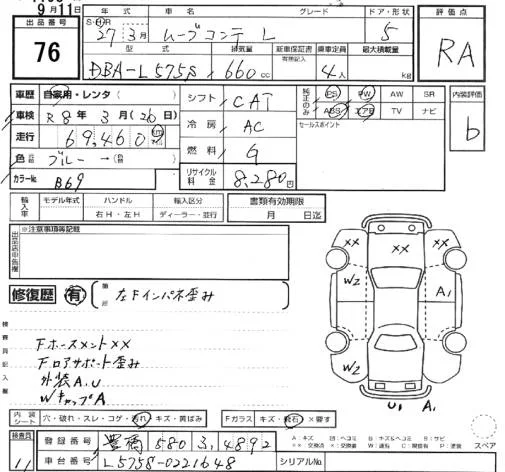 9月11日
出品番号 76
年式 車名 グレード ドア・形状 評価点
S・H 27年3月 ムーブコンテ L 5 RA
型式 排気量 新車保証書 乗車定員 最大積載量
有無記入
DBA-L575S 660cc 4人 kg
車歴 自家用・レンタ( ) シフト CAT 純正のみ PS PW AW SR 内装評価
車検 R8年3月(26日) 冷房 AC ABS エアB TV ナビ b
走行 69,460 燃料 G セールスポイント
色 ブルー→ リサイクル料金 8,280円
カラーNo. B69
輸入車 モデル年式 ハンドル 輸入区分 書類有効期限
右H・左H ディーラー・並行 月 日迄
出品店申告欄 ※注意事項等記載
修復歴 有 箇所 左Fインパネ歪み
検査員記入欄
Fホースメント××
Fロアサポート歪み
外装A.U
WキャップA
×× ×× ××
W2 A1
W2
U1 A1
内装シート 穴・破れ・スレ・コゲ・汚れ・キズ・黄ばみ Fガラス キズ・飛石・×要す スペア
検査員 11 登録番号 豊橋 580 ら 4892
車台番号 L575S-0221648 シリアルNo.